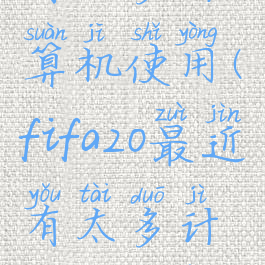 suàn jī shǐ yòng
算机使用(
zuì jìn
fifa20最近
yǒu tài duō jì
有太多计